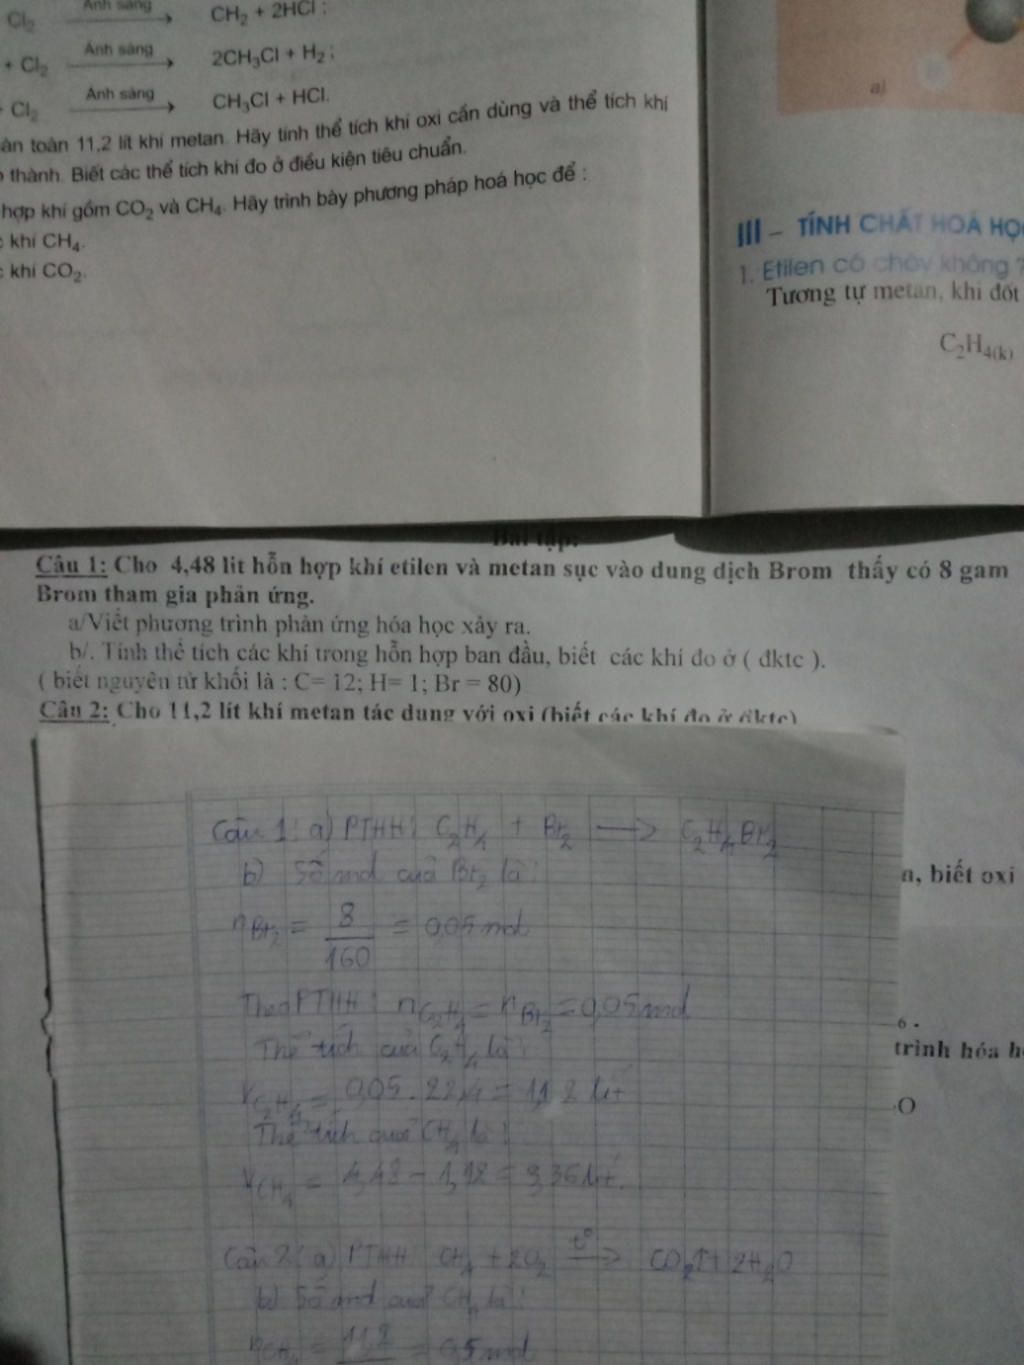 Cl₂ Ánh sáng CH₂ + 2HCl ;
+ Cl₂ Ánh sáng 2CH₃Cl + H₂ ;
+ Cl₂ Ánh sáng CH₃Cl + HCl.
àn toàn 11,2 lít khí metan. Hãy tính thể tích khí oxi cần dùng và thể tích khí
thành. Biết các thể tích khí đo ở điều kiện tiêu chuẩn.
hợp khí gồm CO₂ và CH₄. Hãy trình bày phương pháp hoá học để :
khí CH₄.
khí CO₂.
a)
III – TÍNH CHẤT HOÁ HỌ
1. Etilen có cháy không ?
Tương tự metan, khi đốt
C₂H₄(k)
Bài tập:
Câu 1: Cho 4,48 lit hỗn hợp khí etilen và metan sục vào dung dịch Brom thấy có 8 gam
Brom tham gia phản ứng.
a/Viết phương trình phản ứng hóa học xảy ra.
b/. Tính thể tích các khí trong hỗn hợp ban đầu, biết các khí đo ở ( đktc ).
( biết nguyên tử khối là : C= 12; H= 1; Br = 80)
Câu 2: Cho 11,2 lít khí metan tác dụng với oxi (biết các khí đo ở đktc)
n, biết oxi
6 .
trình hóa h
O
Câu 1: a) PTHH: C₂H₄ + Br₂ → C₂H₄Br₂
b) Số mol của Br₂ là:
nBr₂ = 8/160 = 0,05 mol
Theo PTHH: nC₂H₄ = nBr₂ = 0,05 mol
Thể tích của C₂H₄ là:
VC₂H₄ = 0,05 . 22,4 = 1,12 lít
Thể tích của CH₄ là:
VCH₄ = 4,48 - 1,12 = 3,36 lít.
Câu 2: a) PTHH CH₄ + 2O₂ t° → CO₂↑ + 2H₂O
b) Số mol của CH₄ là:
nCH₄ = 11,2 = 0,5 mol